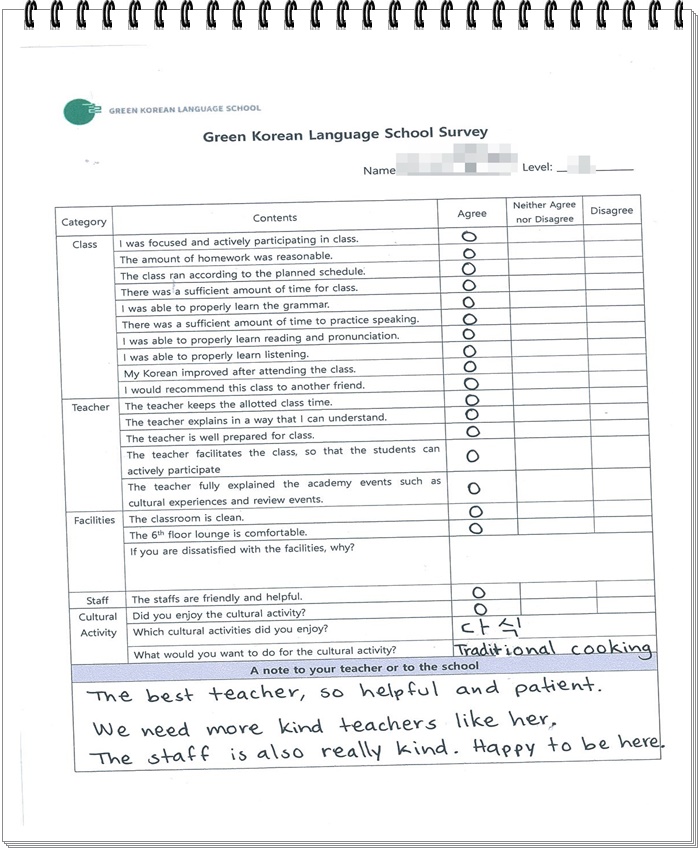 GREEN KOREAN LANGUAGE SCHOOL
Green Korean Language School Survey
Name Level:
Category Contents Agree Neither Agree nor Disagree Disagree
Class I was focused and actively participating in class. O
The amount of homework was reasonable. O
The class ran according to the planned schedule. O
There was a sufficient amount of time for class. O
I was able to properly learn the grammar. O
There was a sufficient amount of time to practice speaking. O
I was able to properly learn reading and pronunciation. O
I was able to properly learn listening. O
My Korean improved after attending the class. O
I would recommend this class to another friend. O
Teacher The teacher keeps the allotted class time. O
The teacher explains in a way that I can understand. O
The teacher is well prepared for class. O
The teacher facilitates the class, so that the students can
actively participate O
The teacher fully explained the academy events such as
cultural experiences and review events. O
Facilities The classroom is clean. O
The 6th floor lounge is comfortable. O
If you are dissatisfied with the facilities, why?
Staff The staffs are friendly and helpful. O
Cultural Activity Did you enjoy the cultural activity? O
Which cultural activities did you enjoy? 다식
What would you want to do for the cultural activity? Traditional cooking
A note to your teacher or to the school
The best teacher, so helpful and patient.
We need more kind teachers like her.
The staff is also really kind. Happy to be here.